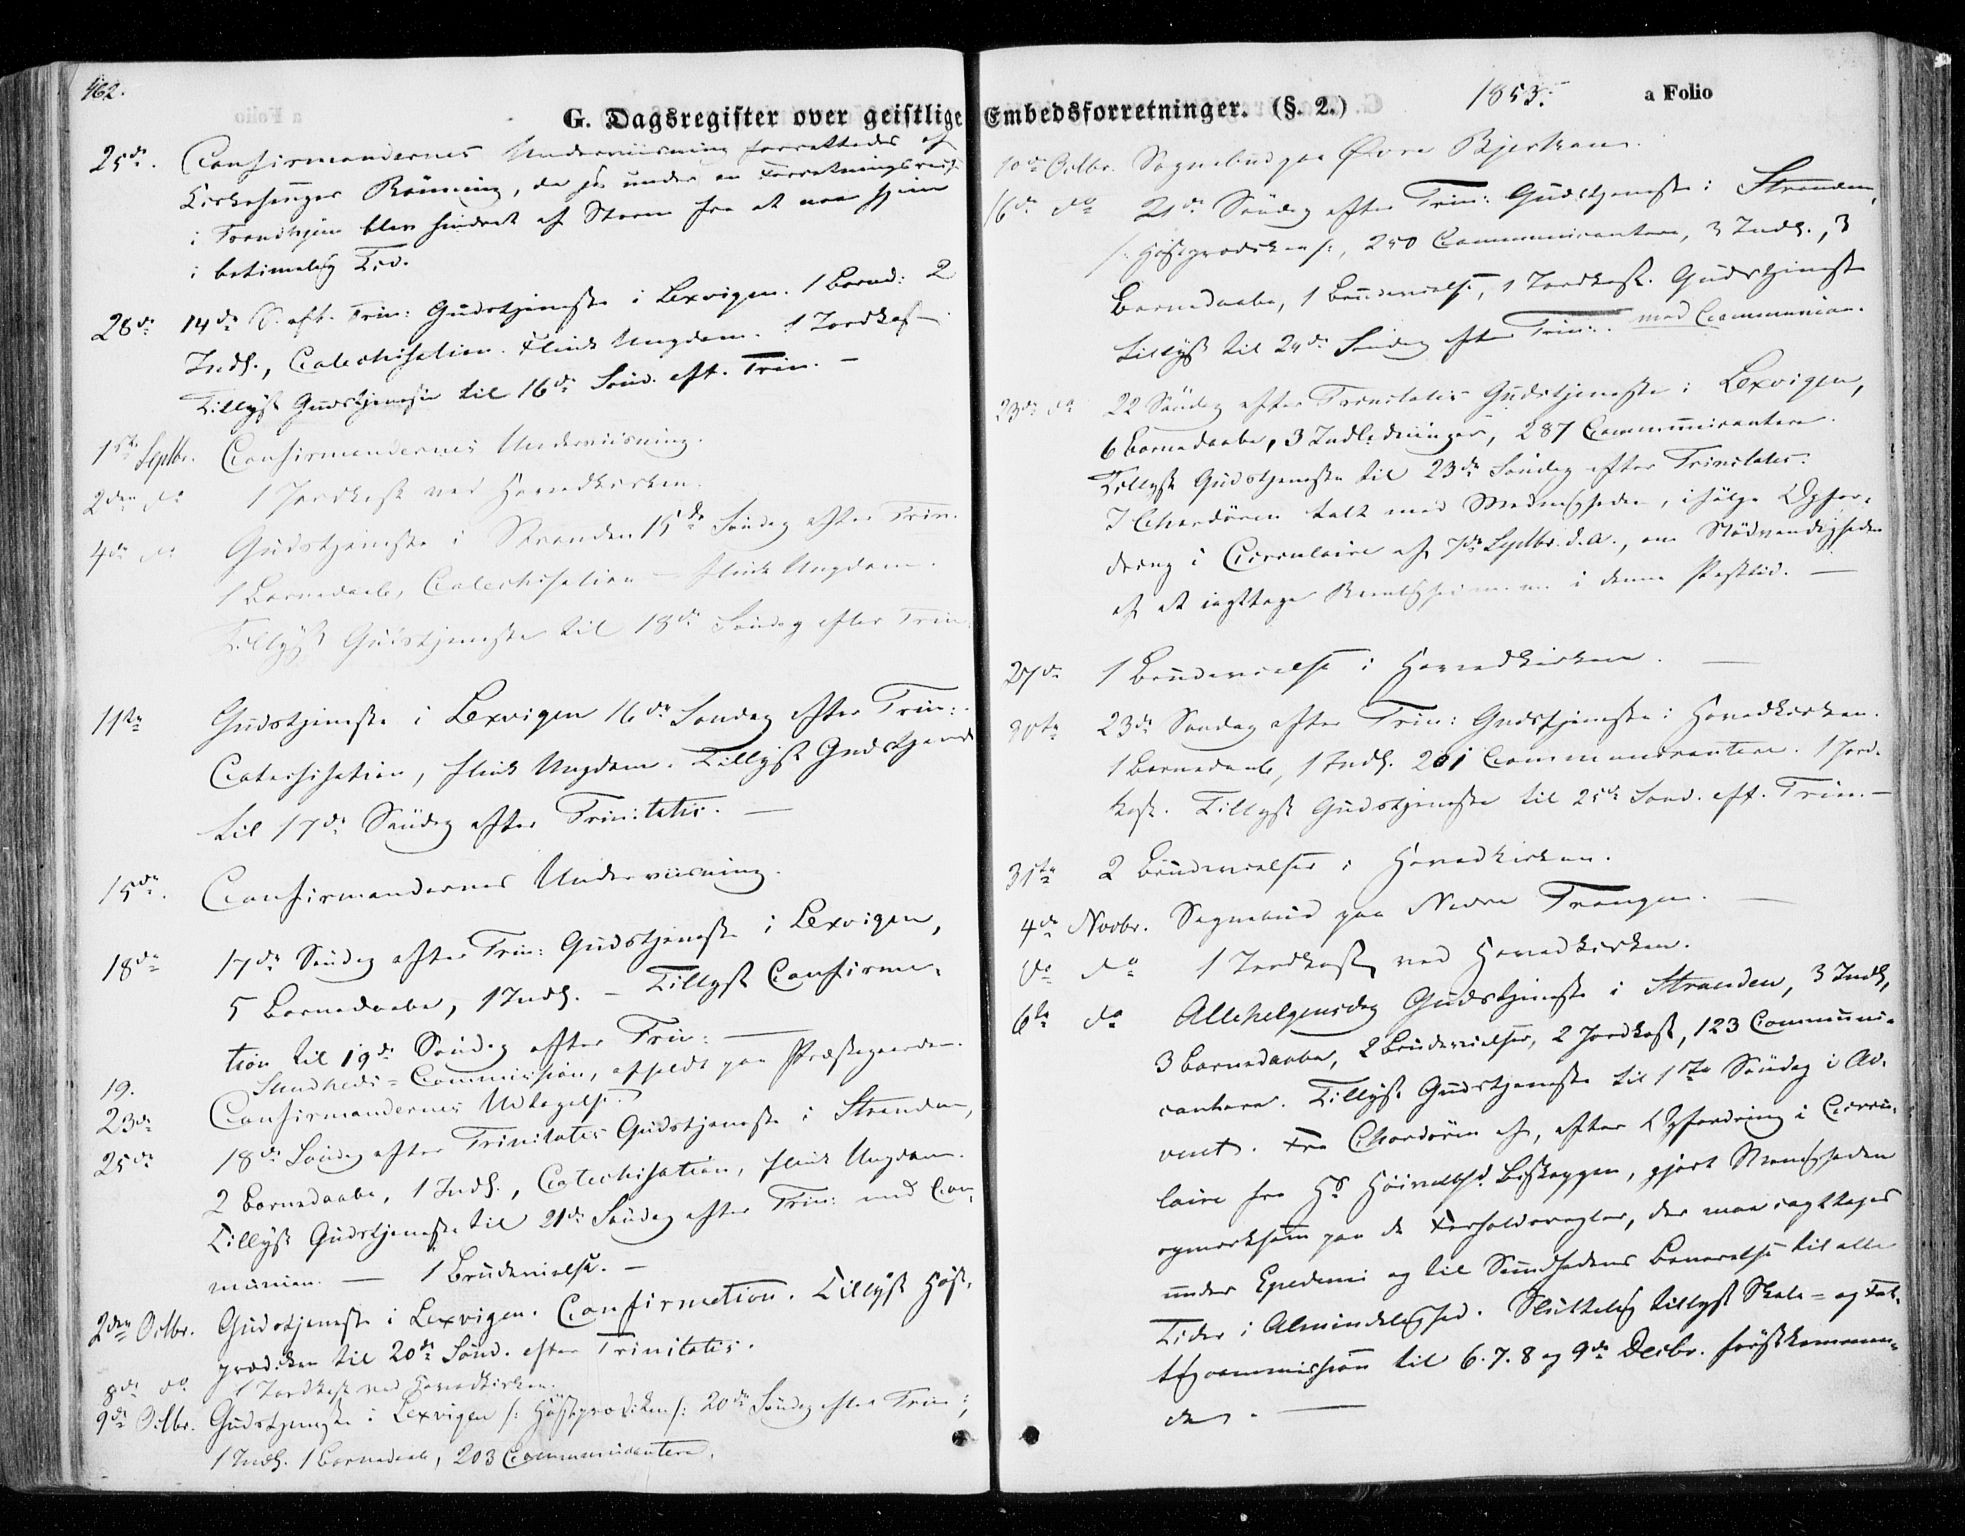 462.
G. Dagsregister over geistlige Embedsforretninger. (§. 2.)
1853.
a Folio
25de. Confirmandernes Underviisning forrettedes af
Kirkesanger Rönning, da jeg under en Forretningsreise
i Trondhjem blev hindret af Storm fra at naa hjem
i betimelig Tid.
28de 14de S. eft. Trin: Gudstjeneste i Lexvigen. 1 Barned: 2
Indl., Catechisation. Flink Ungdom. 1 Jordkast
Tillyst Gudstjeneste til 16de Sönd. eft. Trin. —
1ste Septbr. Confirmandernes Underviisning.
2den do 1 Jordkast ved Hovedkirken.
4de do Gudstjeneste i Stranden 15de Söndag efter Trin.
1 Barnedaab, Catechisation — flink Ungdom.
Tillyst Gudstjeneste til 18de Söndag efter Trin.
11te Gudstjeneste i Lexvigen 16de Söndag efter Trin:
Catechisation, flink Ungdom. Tillyst Gudstjeneste
til 17de Söndag efter Trinitatis. —
15de. Confirmandernes Underviisning.
18de 17de Söndag efter Trin: Gudstjeneste i Lexvigen,
5 Barnedaabe, 1 Indl. — Tillyst Confirma-
tion til 19de Söndag efter Trin: —
19. Sundheds-Commission, afholdt paa Præstegaarden.
23de Confirmandernes Udtagelse.
25de 18de Söndag efter Trinitatis Gudstjeneste i Stranden,
2 Barnedaabe, 1 Indl., Catechisation, flink Ungdom.
Tillyst Gudstjeneste til 21de Söndag efter Trin: med Com-
munion. — 1 Brudevielse. —
2den Octbr. Gudstjeneste i Lexvigen. Confirmation. Tillyst Höst-
prædiken til 20de Sönd. efter Trinitatis.
8de do 1 Jordkast ved Hovedkirken.
9de Octbr. Gudstjeneste i Lexvigen /: Höstprædiken /: 20de Söndag efter Trin:,
1 Indl. 1 Barnedaab, 203 Communicantere.
10de Octbr. Sognebud paa Övre Bjerkan.
16de do 21de Söndag efter Trin: Gudstjeneste i Stranden,
/: Höstprædiken /:, 250 Communicantere, 3 Indl., 3
Barnedaabe, 1 Brudevielse, 1 Jordkast. Gudstjeneste
tillyst til 24de Söndag efter Trin: med Communion.
23de do 22 Söndag efter Trinitatis Gudstjeneste i Lexvigen,
6 Barnedaabe, 3 Indledninger, 287 Communicantere.
Tillyst Gudstjeneste til 23de Söndag efter Trinitatis.
I Chordören talt med Menigheden, ifölge Opfor-
dring i Circulaire af 7de Septbr. d. A., om Nödvendigheden
af at iagttage Reenlighed m. m. i denne Pesttid. —
27de 1 Brudevielse i Hovedkirken. —
30te 23de Söndag efter Trin: Gudstjeneste i Hovedkirken.
1 Barnedaab, 1 Indl. 201 Communicantere. 1 Jord-
kast. Tillyst Gudstjeneste til 25de Sönd. eft. Trin. —
31te 2 Brudevielser i Hovedkirken.
4de Novbr. Sognebud paa Nedre Trangen. —
do do 1 Jordkast ved Hovedkirken.
6te do Allehelgensdag Gudstjeneste i Stranden, 3 Indl,
3 Barnedaabe, 2 Brudevielser, 2 Jordkast, 123 Communi-
cantere. Tillyst Gudstjeneste til 1ste Söndag i Ad-
vent. Fra Chordören af, efter Opfordring i Circu-
laire fra Hs Höiærvd. Biskoppen, gjort Menigheden
opmærksom paa de Forholdsregler, der maa iagttages
under Epedemi og til Sundhedens Bevarelse til alle
Tider i Almindelighed. Sluttelig tillyst Skole- og Fat-
tigcommission til 6. 7. 8 og 9de Decbr. förstkommen-
de. —